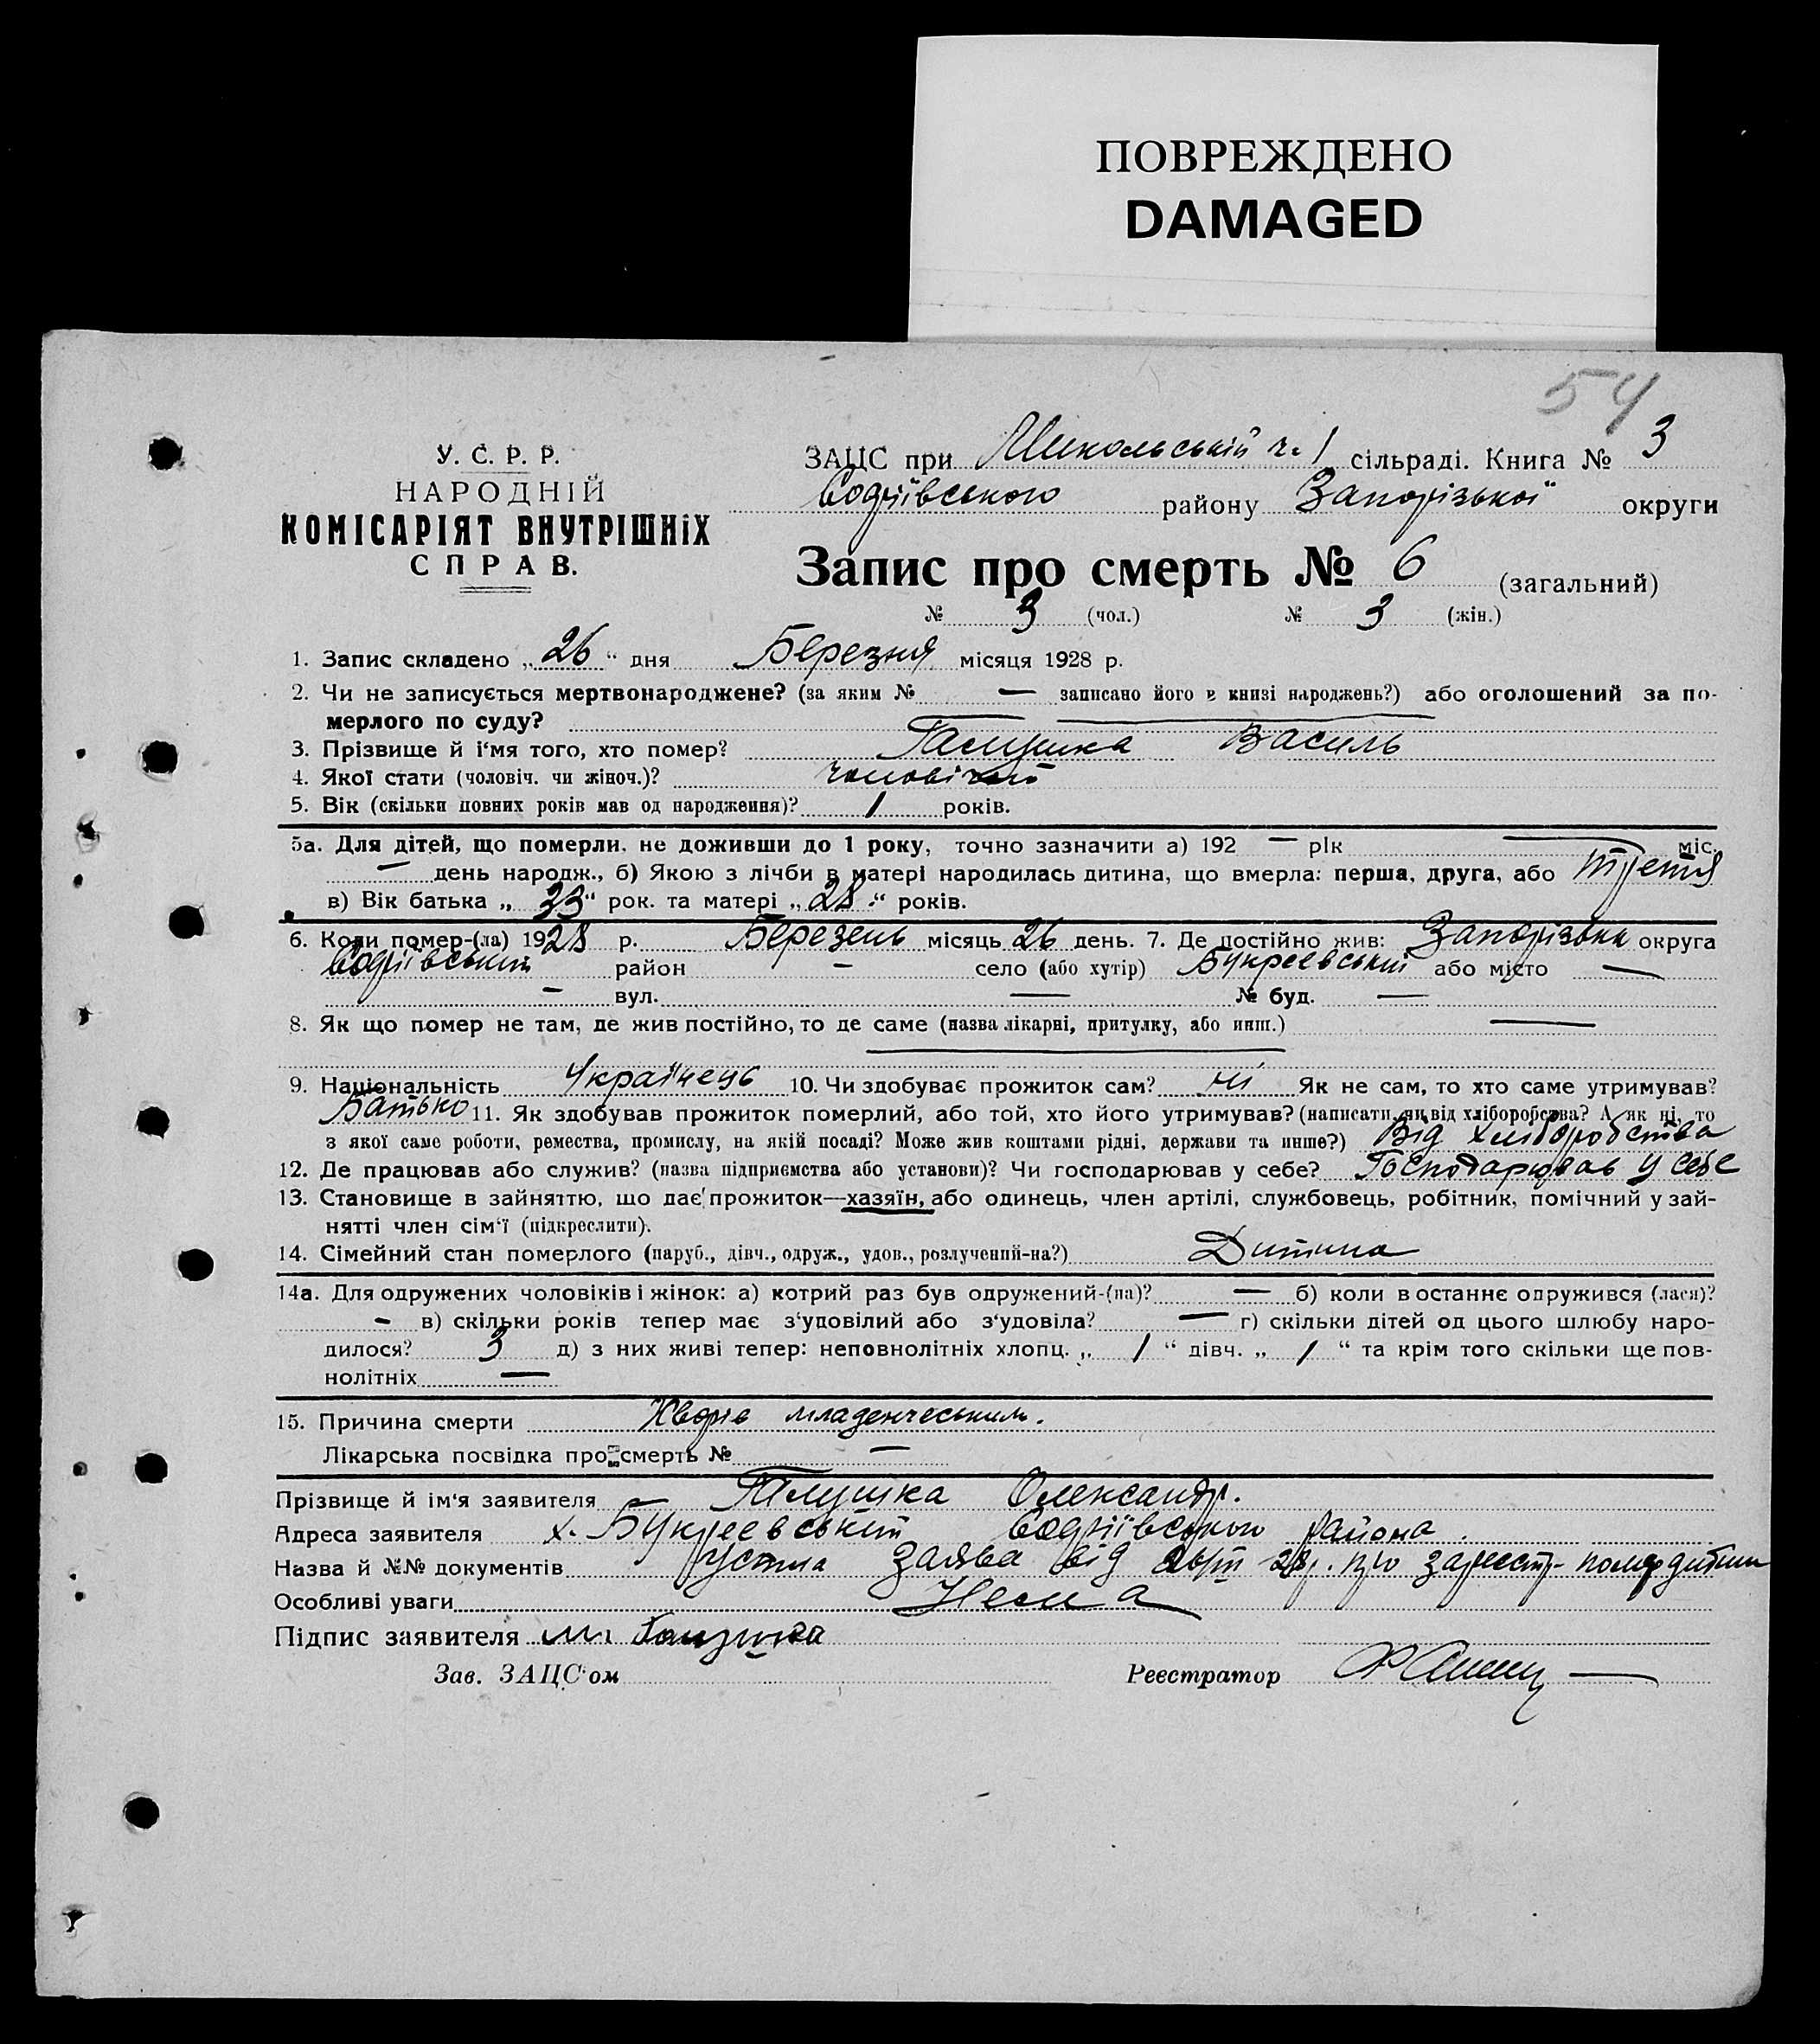 ПОВРЕЖДЕНО
DAMAGED
54
У. С. Р. Р.
НАРОДНІЙ
КОМІСАРІЯТ ВНУТРІШНІХ
СПРАВ.
ЗАЦС при Микольській ч. 1 сільраді. Книга № 3
Софіївського району Запорізької округи
Запис про смерть № 6 (загальний)
№ 3 (чол.) № 3 (жін.)
1. Запис складено „26“ дня Березня місяця 1928 р.
2. Чи не записується мертвонароджене? (за яким № — записано його в книзі народжень?) або оголошений за по-
мерлого по суду? —
3. Прізвище й і‘мя того, хто помер? Галушка Василь
4. Якої статі (чоловіч. чи жіноч.)? чоловічої
5. Вік (скільки повних років мав од народження)? 1 років.
5а. Для дітей, що померли, не доживши до 1 року, точно зазначити а) 192 — рік — міс.
— день народж., б) Якою з лічби в матері народилась дитина, що вмерла: перша, друга, або третя
в) Вік батька „33“ рок. та матері „28“ років.
6. Коли помер-(ла) 1928 р. Березень місяць 26 день. 7. Де постійно жив: Запорізька округа
Софіївський район — село (або хутір) Букреевський або місто —
— вул. — № буд. —
8. Як що помер не там, де жив постійно, то де саме (назва лікарні, притулку, або инш.) —
9. Національність Українець 10. Чи здобуває прожиток сам? ні Як не сам, то хто саме утримував?
Батько 11. Як здобував прожиток померлий, або той, хто його утримував? (написати, чи від хліборобства? А як ні, то
з якої саме роботи, ремества, промислу, на якій посаді? Може жив коштами рідні, держави та инше?) Від хліборобства
12. Де працював або служив? (назва підприємства або установи)? Чи господарював у себе? Господарював у себе
13. Становище в зайняттю, що дає прожиток—хазяїн, або одинець, член артілі, службовець, робітник, помічний у зай-
нятті член сім‘ї (підкреслити).
14. Сімейний стан померлого (паруб., дівч., одруж., удов., розлучений-на?) Дитина
14а. Для одружених чоловіків і жінок: а) котрий раз був одружений-(на)? — б) коли востаннє одружився (лася)?
— в) скільки років тепер має з‘удовілий або з‘удовіла? — г) скільки дітей од цього шлюбу наро-
дилося? 3 д) з них живі тепер: неповнолітніх хлопц. „1“ дівч. „1“ та крім того скільки ще пов-
нолітніх —
15. Причина смерти Хворів младенческим.
Лікарська посвідка про смерть № —
Прізвище й ім‘я заявителя Галушка Олександр.
Адреса заявителя х. Букреевський Софіївського района.
Назва й №№ документів устна заява від 28р. про зареєстр. помер дитини
Особливі уваги Нема
Підпис заявителя Галушка
Зав. ЗАЦС‘ом Реєстратор